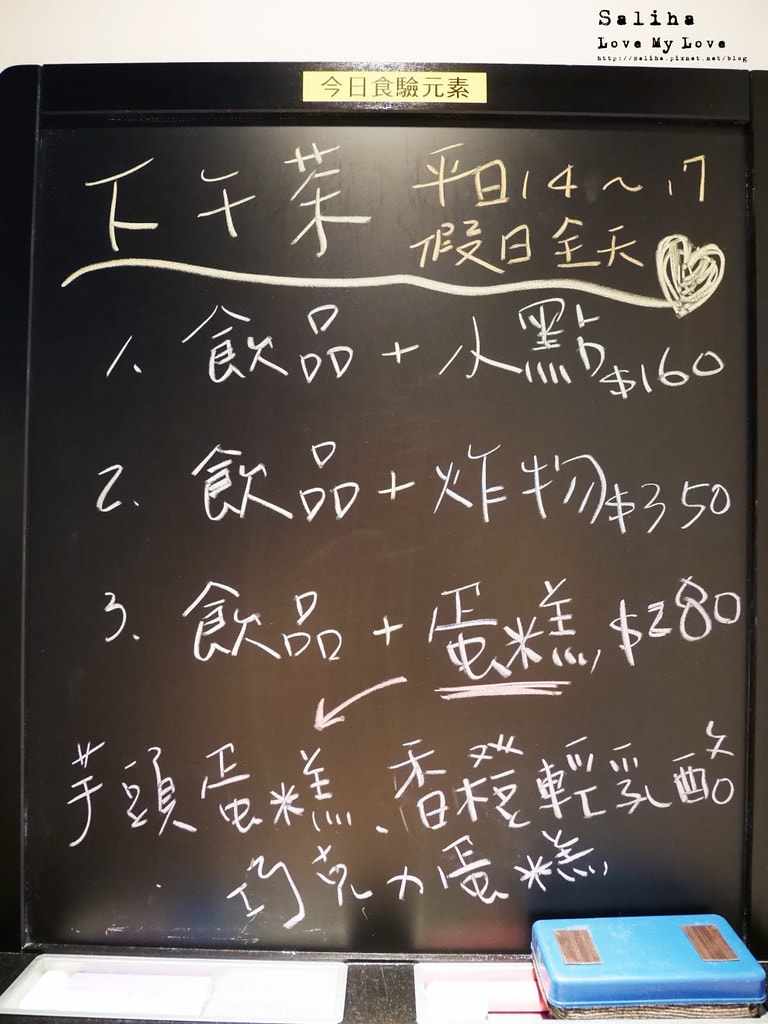 Saliha
Love My Love
http://saliha.pixnet.net/blog
今日食驗元素
下午茶
平日14～17
假日全天
1. 飲品+小點$160
2. 飲品+炸物$350
3. 飲品+蛋糕$280
芋頭蛋糕、香橙輕乳酪
巧克力蛋糕